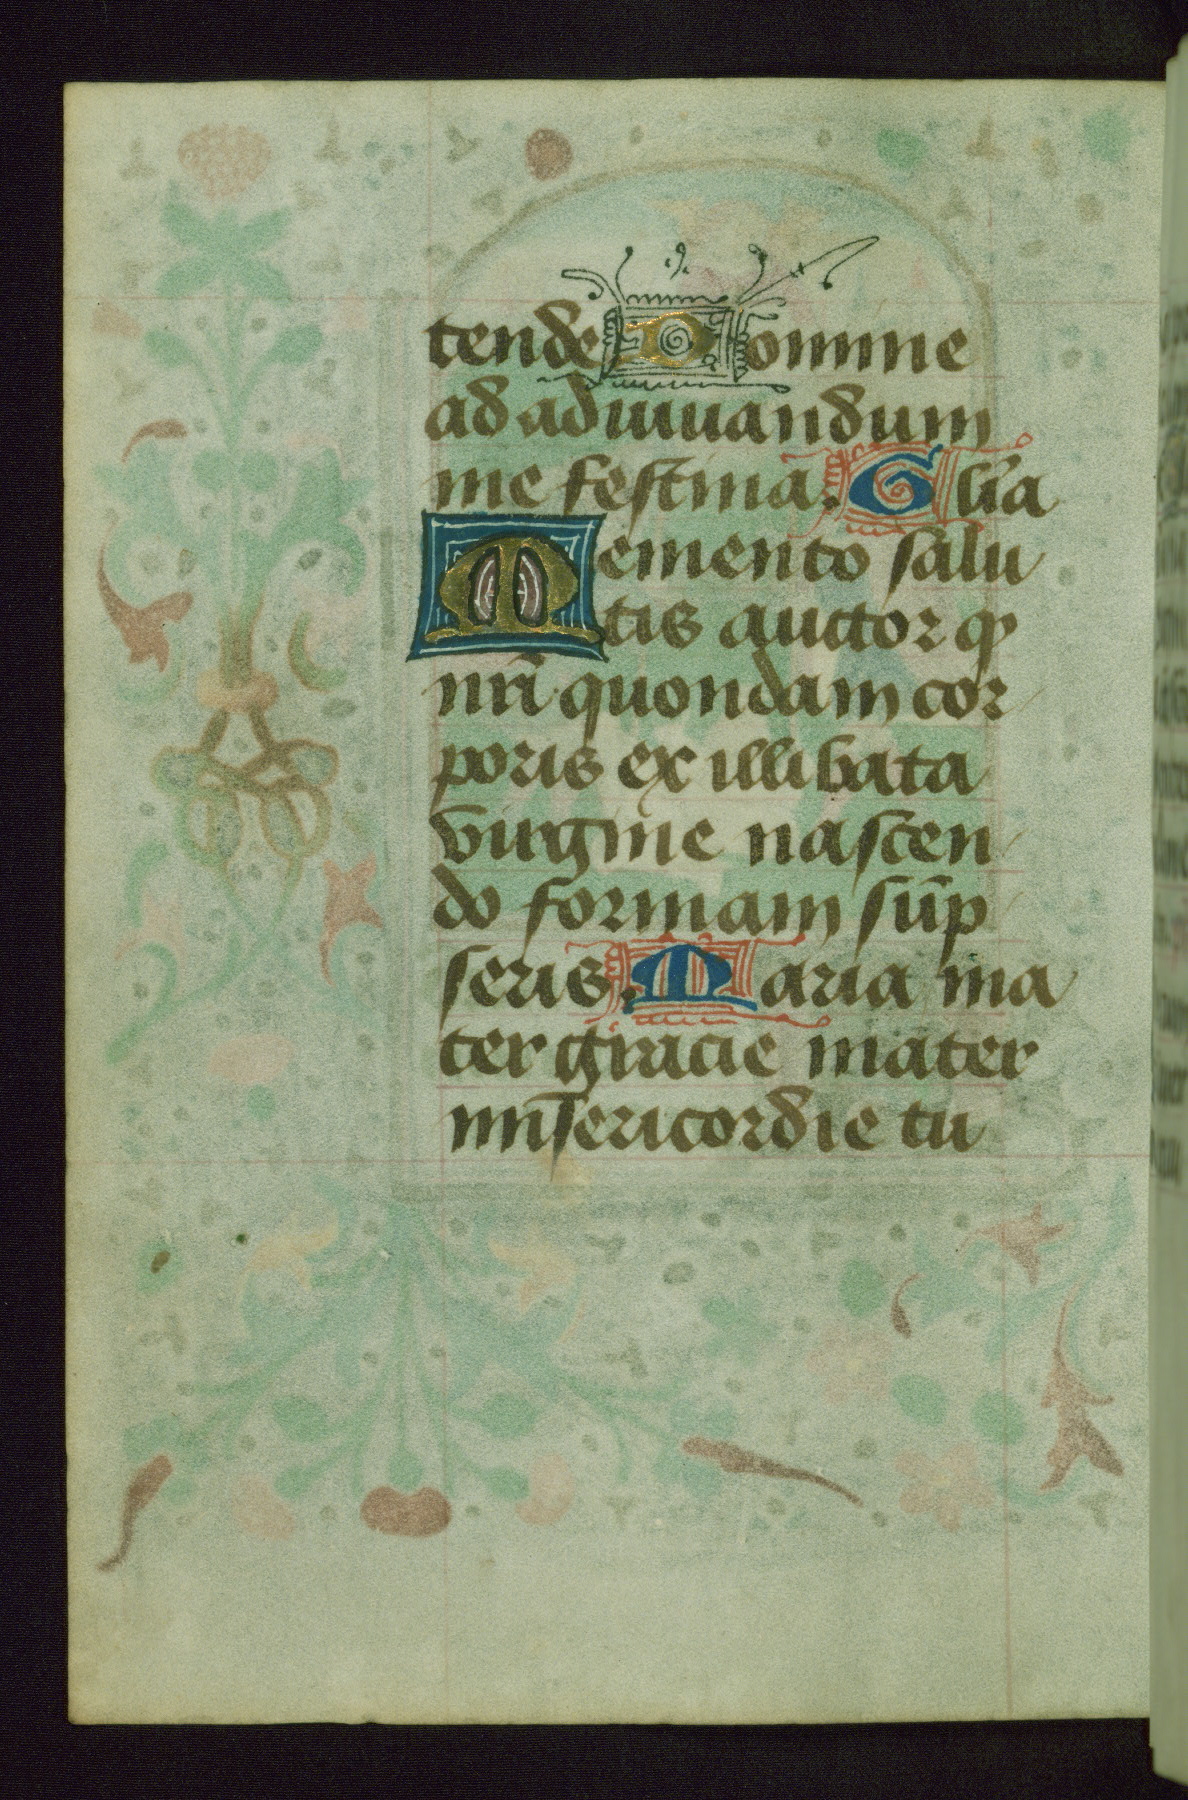 tende Domine
ad adiuuandum
me festina. Glīa
Memento salu
tis auctor ꝙ
nrī quondam cor
poris ex illibata
virgine nascen
do formam sūp
seris. Maria ma
ter gracie mater
misericordie tu